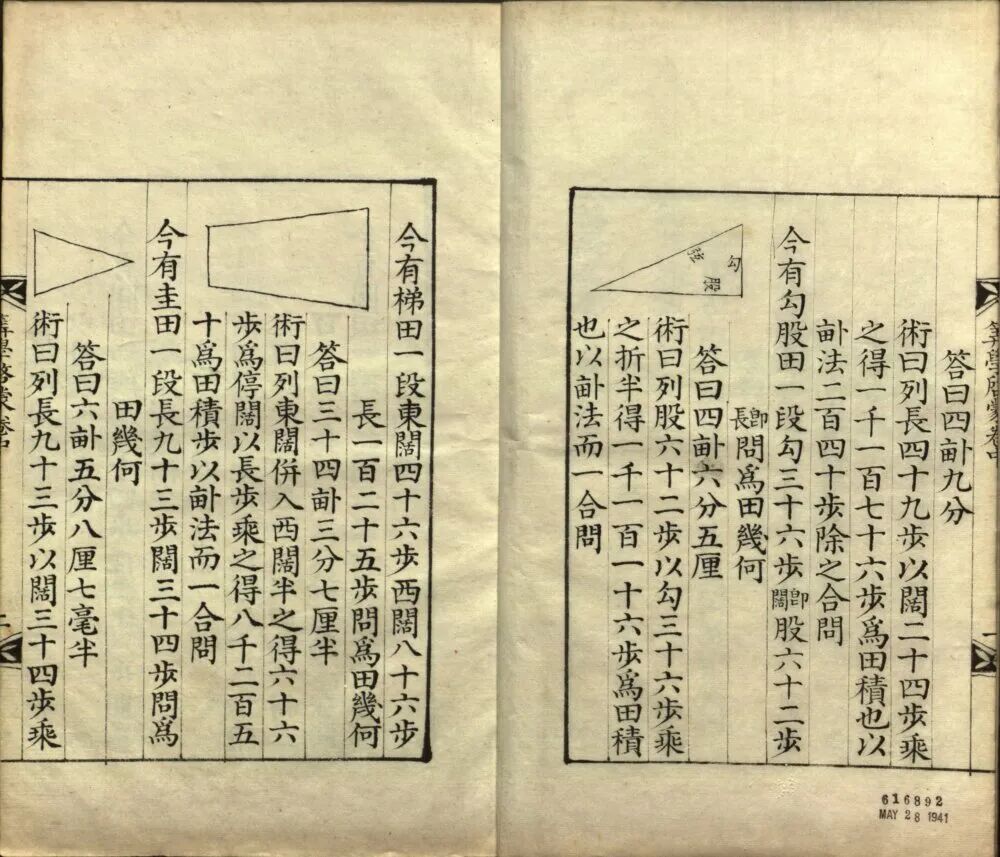 答曰四畝九分
術曰列長四十九步以闊二十四步乘
之得一千一百七十六步爲田積也以
畝法二百四十步除之合問
今有勾股田一段勾三十六步卽闊股六十二步
卽長問爲田幾何
答曰四畝六分五厘
術曰列股六十二步以勾三十六步乘
之折半得一千一百一十六步爲田積
也以畝法而一合問
勾
股
弦
算學啓蒙卷中
今有梯田一段東闊四十六步西闊八十六步
長一百二十五步問爲田幾何
答曰三十四畝三分七厘半
術曰列東闊併入西闊半之得六十六
步爲停闊以長步乘之得八千二百五
十爲田積步以畝法而一合問
今有圭田一段長九十三步闊三十四步問爲
田幾何
答曰六畝五分八厘七毫半
術曰列長九十三步以闊三十四步乘
算學啓蒙卷中
616892
MAY 28 1941